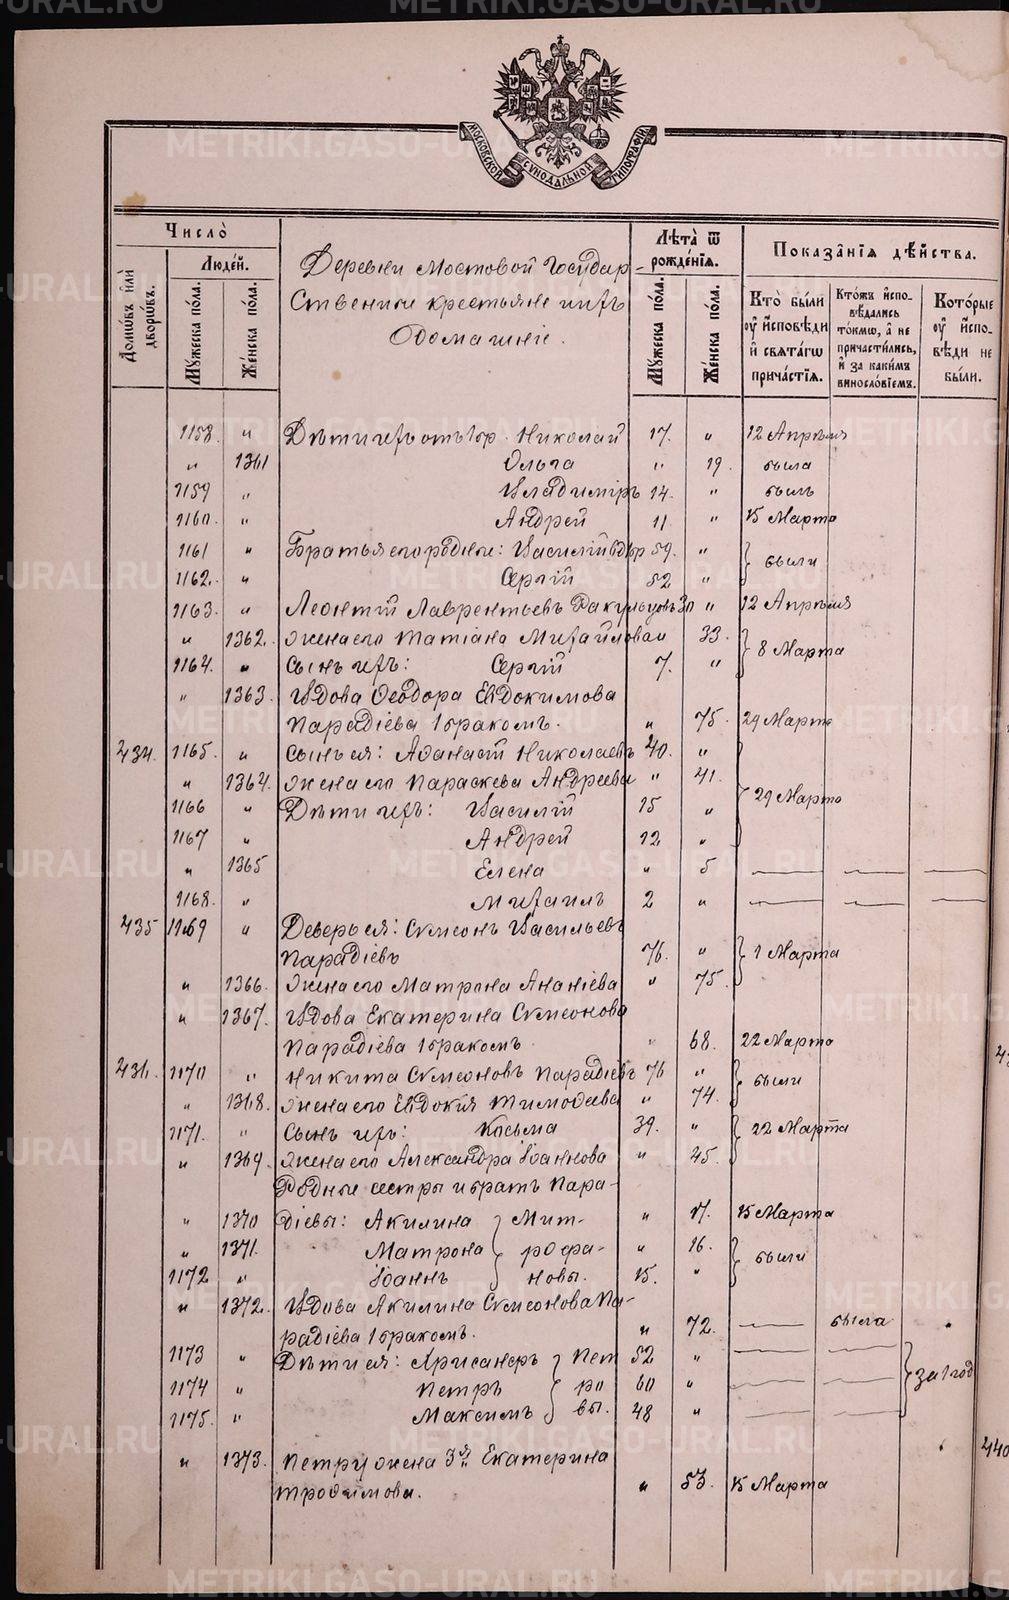 METRIKI.GASO-URAL.RU
МОСКОВСКОЙ СУНОДАЛЬНОЙ ТИПОГРАФІИ
Число̀
Домѡвъ и҆лѝ дворѡвъ.
Люде́й.
Мꙋ́жеска по́ла.
Же́нска по́ла.
Деревни Мостовой Государ-
ственные крестьяне и ихъ
домашніе.
Лѣ́та ѿ рожде́нїѧ.
Мꙋ́жеска по́ла.
Же́нска по́ла.
Показа́нїѧ дѣ́йства.
Кто̀ бы́ли ᲂу҆ и҆сповѣ́ди и҆ свѧта́гѡ прича́стїѧ.
Кто́жъ и҆спо-вѣ́дались то́кмѡ, а҆ не причасти́лись, и҆ за каки́мъ винослові́емъ.
Кото́рые ᲂу҆ и҆спо-вѣ́ди не бы́ли.
1158. " Дѣти ихъ отъ 1 бр. Николай 17. " 12 Апрѣля
" 1361 Ольга " 19. была
1159 " Владиміръ 14. " былъ
1160. " Андрей 11 " 15 Марта
1161 " Братья его родные: Василій вдов 59. " были
1162. " Сергій 52 "
1163. " Леонтій Лаврентьевъ 30 " 12 Апрѣля
" 1362. жена его Татіана Михайлова " 33. 8 Марта
1164. " Сынъ ихъ: Сергій 7. "
" 1363 Вдова Ѳеодора Евдокимова
Парадіева 1 бракомъ. " 75. 29 Марта
434. 1165. " Сынъ ея: Аѳанасій Николаевъ 40. "
" 1364. жена его Параскева Андреева " 41. 29 Марта
1166 " Дѣти ихъ: Василій 15 "
1167 " Андрей 12 "
" 1365 Елена " 5
1168. " Михаилъ 2 "
435 1169 " Деверь ея: Сѵмеонъ Васильевъ
Парадіевъ 76. " 1 Марта
" 1366. жена его Матрона Ананіева " 75.
" 1367. Вдова Екатерина Сѵмеонова
Парадіева 1 бракомъ. " 68. 22 Марта
436. 1170 " Никита Сѵмеоновъ Парадіевъ 76 " были
" 1368. жена его Евдокія Тимоѳеева " 74.
1171. " Сынъ ихъ: Косьма 39. " 22 Марта
" 1369. жена его Александра Іоаннова " 45.
Родные сестры и братъ Пара-
" 1370 діевы: Акилина Мит- " 17. 15 Марта
" 1371. Матрона рофа- " 16. были
1172 " Іоаннъ новы. 15. "
" 1372. Вдова Акилина Сѵмеонова Па-
радіева 1 бракомъ. " 72. была
1173 " Дѣти ея: Хрисанѳъ Пет 52 "
1174 " Петръ ро 60 " за 1 год
1175. " Максимъ вы. 48 "
" 1373. Петру жена 3 Екатерина
Трофимова. " 53. 15 Марта
440